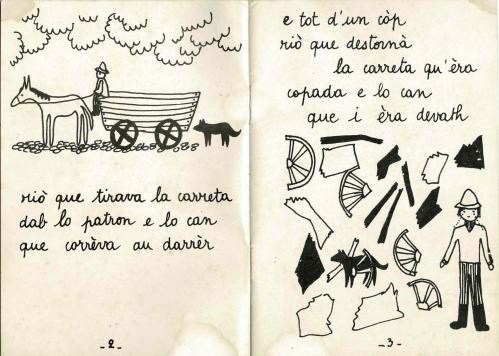 riò que tirava la carreta
dab lo patron e lo can
que corrèva au darrèr
- 2 -
e tot d'un còp
riò que destornà
la carreta qu'èra
copada e lo can
que i èra devath
- 3 -